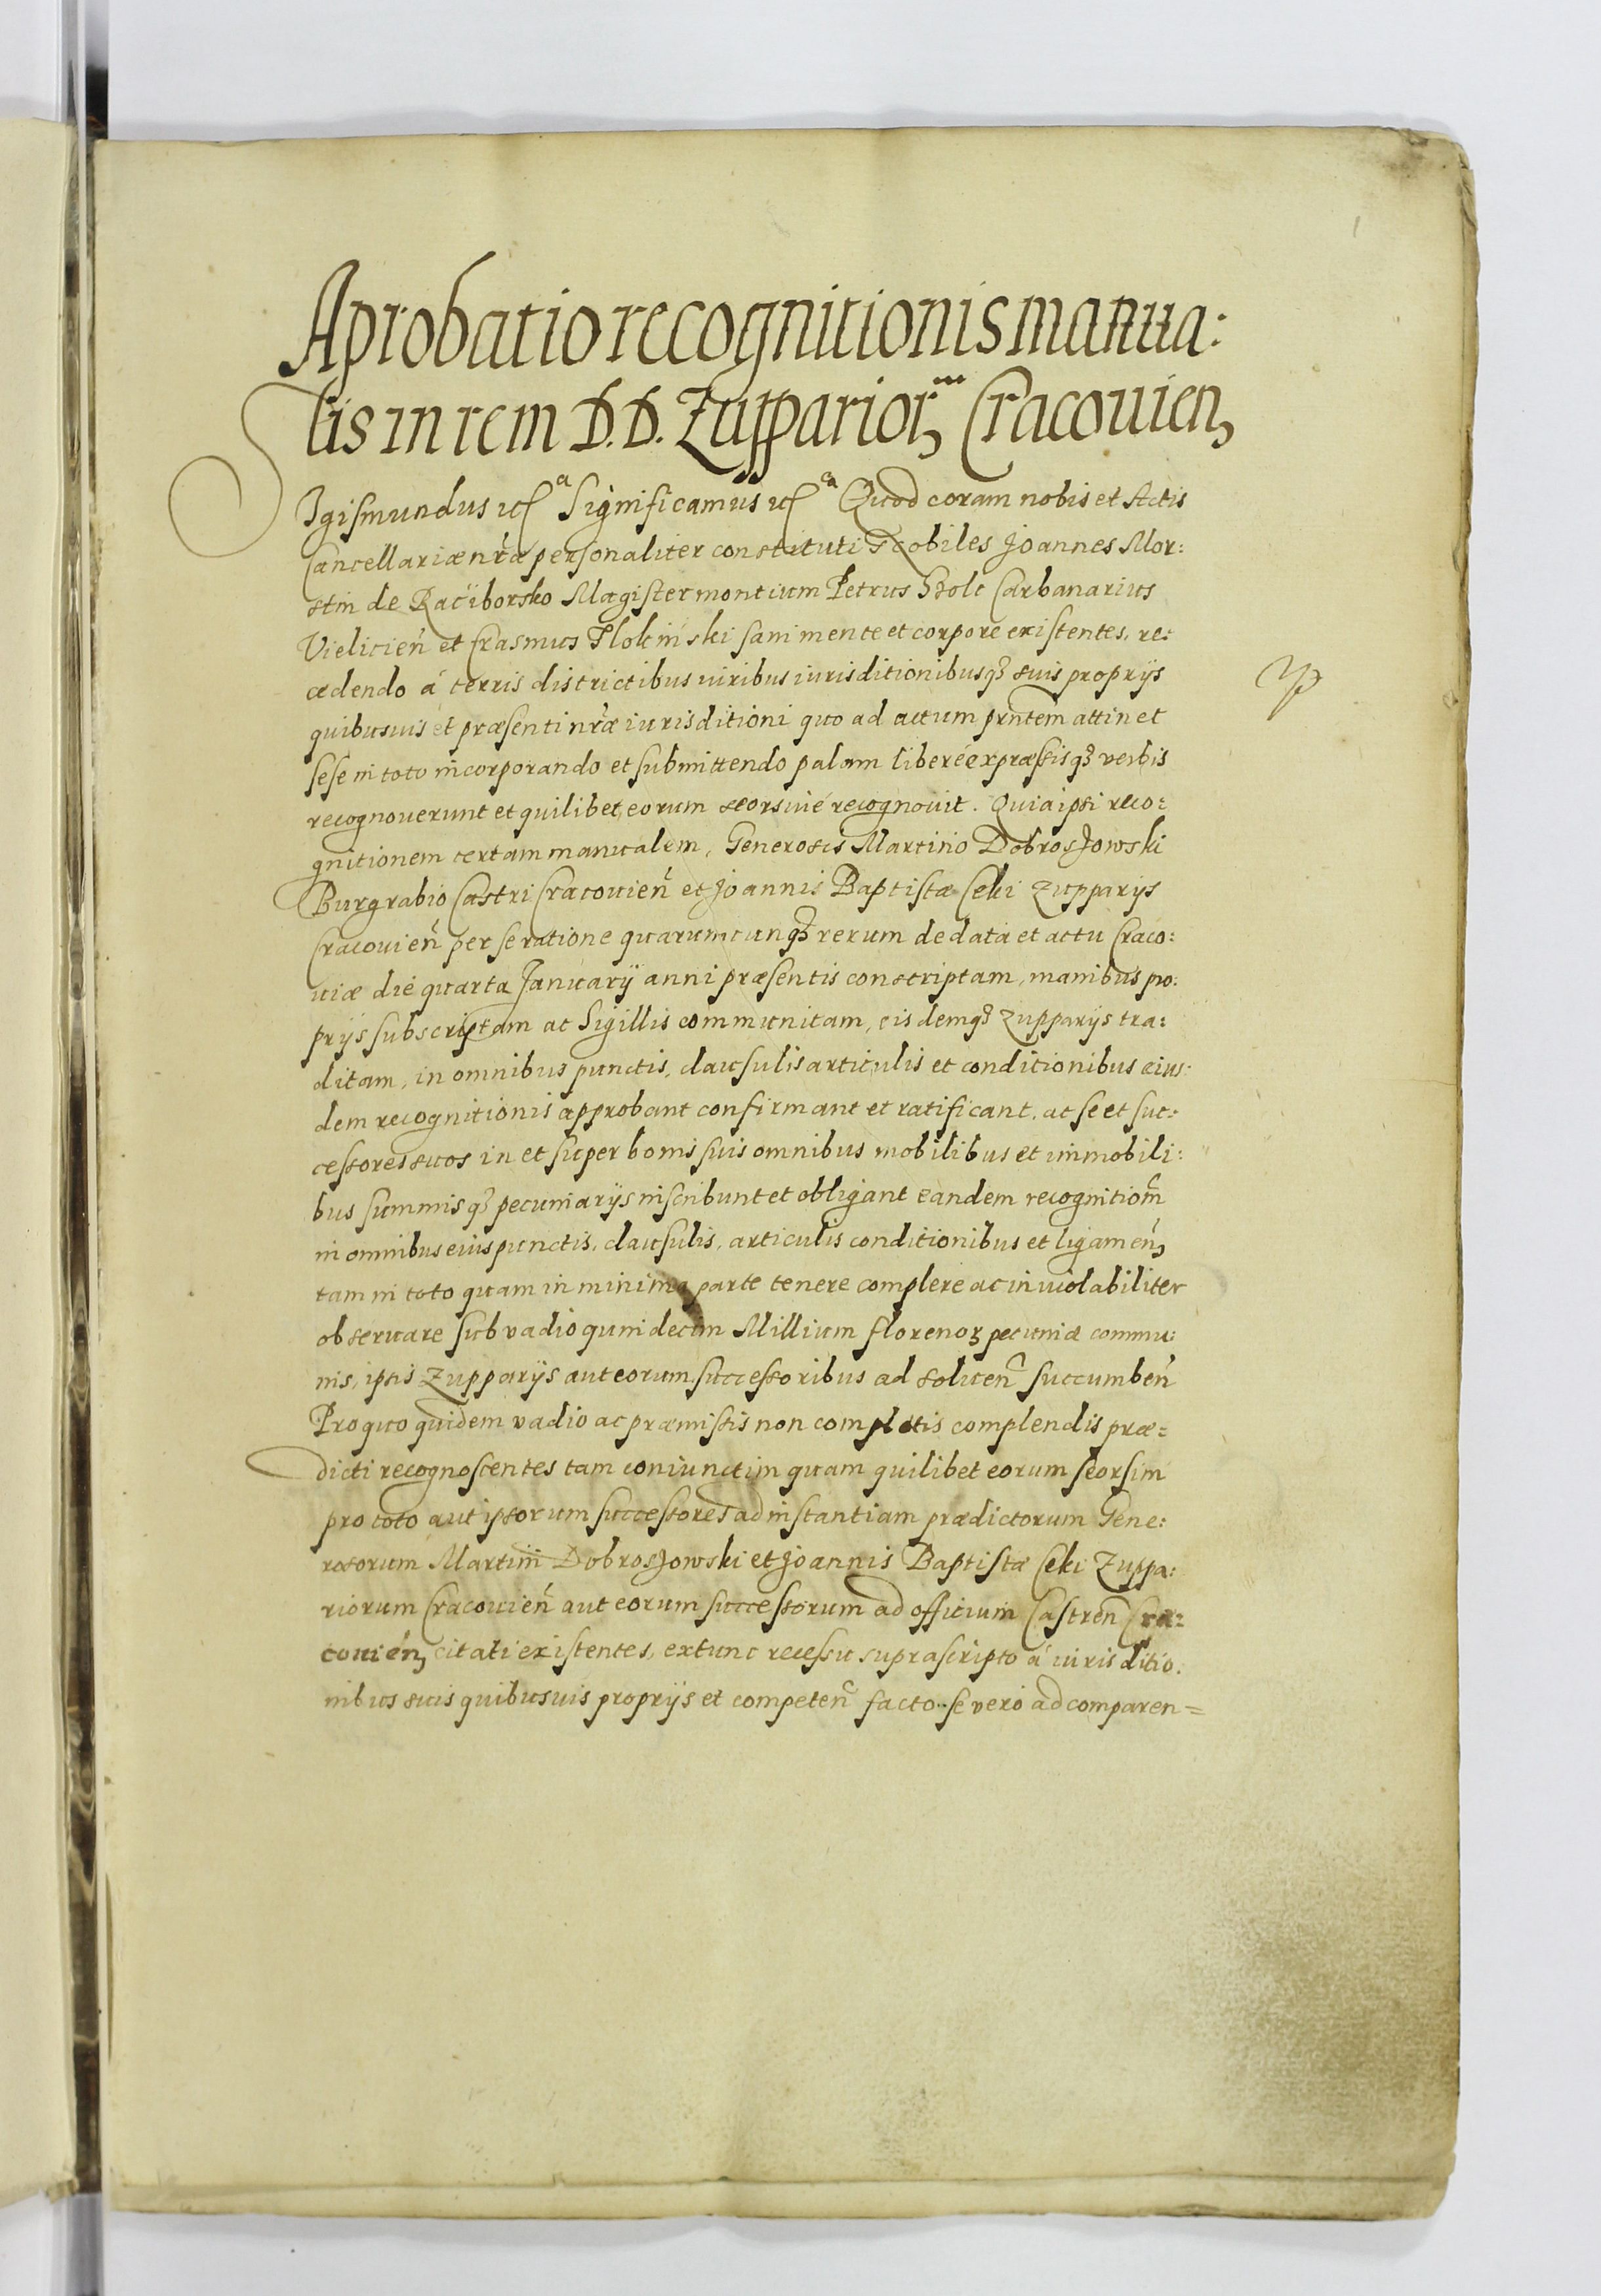 1
Aprobatio recognitionis manua:
lis in rem D.D. Zupparior, Cracouien,
Sigismundus etc Significamus etc Quod coram nobis et Actis
Cancellariæ nr̃æ personaliter constituti Nobiles Joannes Mor:
stin de Raciborsko Magister montium Petrus Carbanarius
Vieliciẽn et Erasmus sani mente et corpore existentes, re:
cedendo á terris districtibus iuribus iurisditionibusq3 suis proprijs
quibusuis et præsenti nr̃æ iurisditioni quo ad actum prñtem attinet
sese in toto incorporando et submittendo palam liberé expressisq3 verbis
recognouerunt et quilibet eorum seorsiué recognouit. Quia ipsi reco:
gnitionem certam manualem, Generosis Martino Dobrosjowski
Burgrabio Castri Cracouiẽn et Joannis Baptistæ Ceki Zupparijs
Cracouiẽn per se ratione quarumcunq3 rerum de data et actu Craco:
uiæ die quarta Januarij anni præsentis conscriptam, manibus pro:
prijs subscriptam ac Sigillis communitam, eisdemq3 Zupparijs tra:
ditam, in omnibus punctis, clausulis articulis et conditionibus eius:
dem recognitionis approbant confirmant et ratificant, ac se et suc:
cessores suos in et super bonis suis omnibus mobilibus et immobili:
bus summisq3 pecuniarijs inscribunt et obligant eandem recognitiom̃
in omnibus eius punctis, clausulis, articulis conditionibus et ligamẽn,
tam in toto quam in minima parte tenere complere ac inuiolabiliter
obseruare sub vadio quindecim Millium florenoꝝ pecuniæ commu:
nis, ipsis Zupparijs aut eorum successoribus ad soluceñ succumbeñ
Pro quo quidem vadio ac præmissis non completis complendis præ=
dicti recognoscentes tam coniunctim quam quilibet eorum seorsim
pro toto aut ipsorum successores ad instantiam prædictorum Gene:
rosorum Martini Dobrosjowski et Joannis Baptistæ Ceki Zuppa:
riorum Cracouiẽn aut eorum successorum ad officium Castreñ Cra:
couién, citati existentes, extunc recessu suprascripto á iurisditio:
nibus suis quibusuis proprijs et competeñ facto. se vero ad comparen=